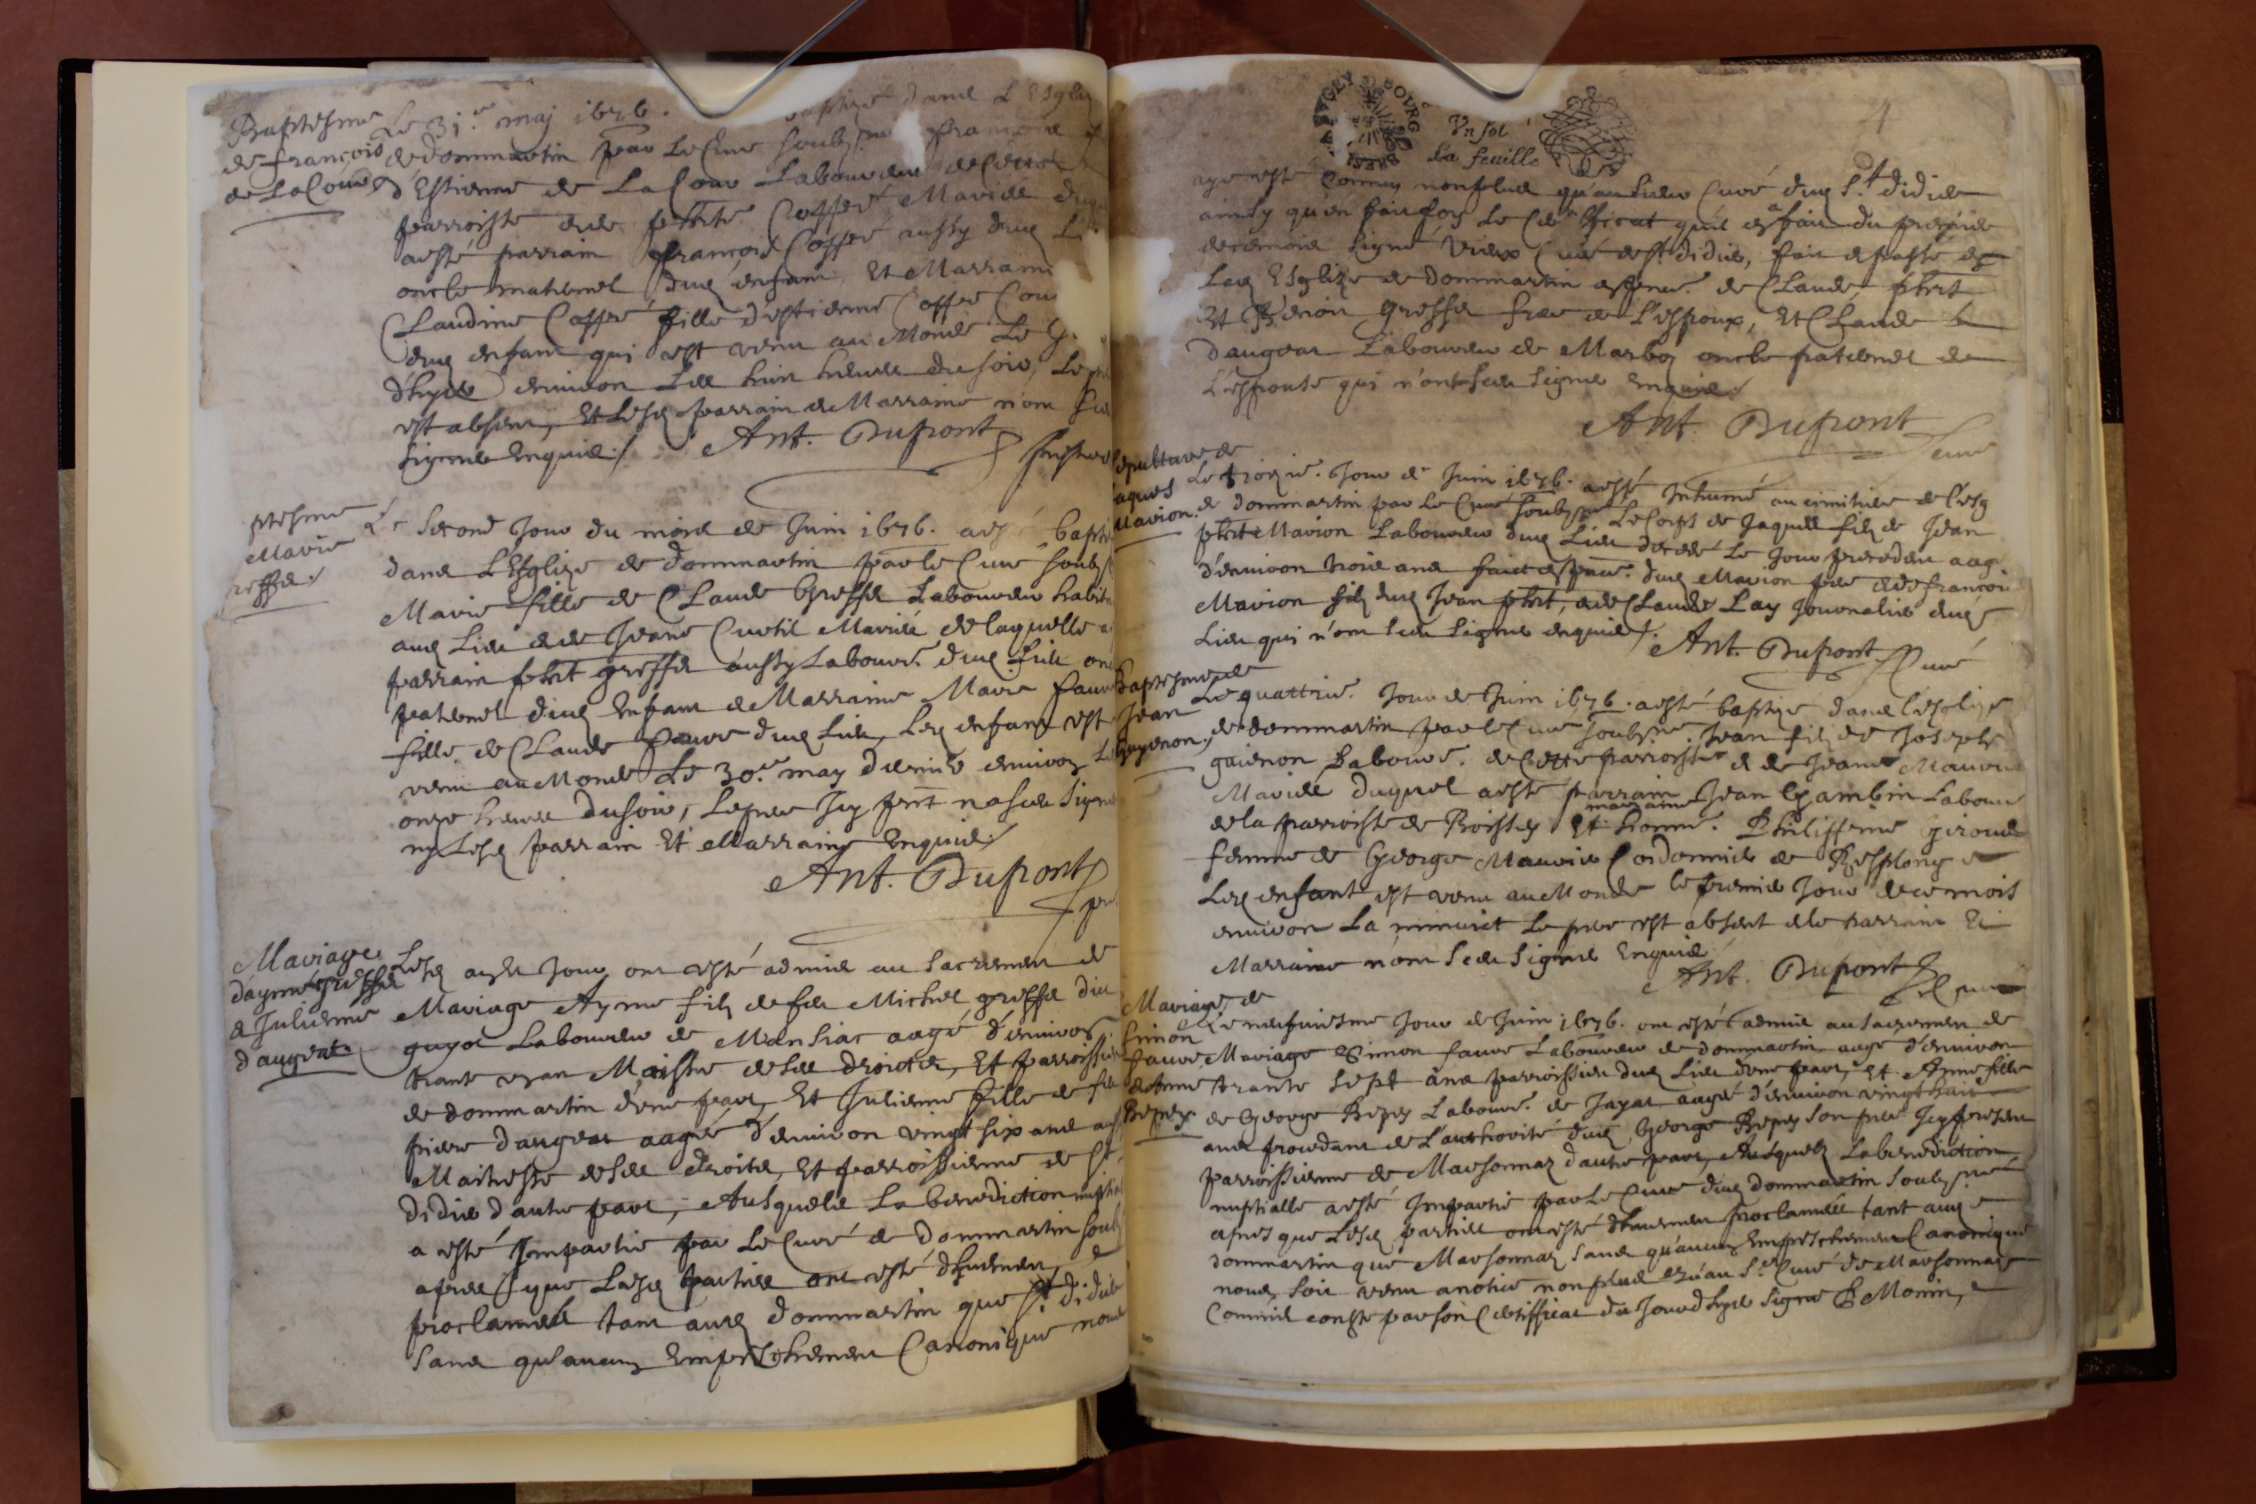 Baptesme
de françois
de LaCour
Le 31.e maj 1676. baptizé dans L'Esglize
de dommartin par Le Curé soubs.né françois
d'Estienne de LaCour Laboureur de Cette
parroisse et de ptte Coffre Mariés
a esté parrain françois Coffre aussy dud. L
oncle maternel dud. enfant, Et Marraine
Claudine Coffre fille d'estienne Coffre Cou
dud. enfant qui est venu au Monde Le
d'hyer environ Les huit heures du soir, Le
est absent, Et Lesd. parrain et Marraine n'ont sceu
signer Enquis /
Ant. Dupont
ptesme
Marie
reffet /
Le Second Jour du mois de Juin 1676. a baptisé
dans L'Esglize de dommartin par le Curé soubs
Marie fille de Claude Greffet Laboureur habit
aud. Lieu et de Jeane Curtil Mariés de laquelle a
parrain ptrt greffet aussy Labour. dud. Lieu on
paternel dud. Enfant et Marraine Marie faure
fille de Claude faure dud. Lieu, Led. enfant est
venu au Monde Le 30.e may dernier environ
onze heures du soir, Le pere Icy pnt na sceu signer
ny Lesd. parrain Et Marraine Enquis /
Ant. Dupont
Mariage
d'aymé greffet
et Julienne
d'augerat
Lesd. an et Jour ont esté admis au Sacrement de
Mariage Ayme fils de feu Michel greffet dit
guyot Laboureur de Mansiat aagé d'environ
trante un an Maistre de ses droicts, Et parroissien
de dommartin d'une part, Et Julienne fille de feu
piere daugerat aagée d'environ vingt six ans aussy
Maitresse de ses droits, Et parroissienne de St.
didier d'autre part, Ausquels La benediction nuptial
a esté Impartie par Le Curé de dommartin soub
apres que Lesd. parties ont esté dheument
proclamés tant aud. dommartin que St. didier
sans qu'aucun Empeschement Canonique nous
BOURG
Vn sol
La feuille
4
aye esté Connu nonplus qu'au Sieur Curé dud. St. didier
ainsy qu'en fait foy Le Certificat quil en a fait du
signé Vieux Curé de St. didier, fait et passé en
Lad. Esglize de Dommartin de Claude ptrt
Et Benoit greffet frere de L'espoux, Et Claude
d'augerat Laboureur de Marboz oncle paternel de
L'espouse qui n'ont sceu signer Enquis /
Ant. Dupont
Curé
Sepulture de
Jaques
Marion
Le troizie. Jour de Juin 1676. a esté Inhumé au cimitiere de L'esg
de dommartin par Le Curé soubsné Le Corps de Jaques fils de Jean
ptrt Marion Laboureur dud. Lieu decedé Le Jour precedent aagé
d'environ trois ans faict et p dud. Marion pere et de françois
Marion fils dud. Jean ptrt, et de Claude Lay Journalier dud.
Lieu qui n'ont sceu signer enquis /.
Ant. Dupont Curé
Baptesme de
Jean
guyenon
Le quattrie. Jour de Juin 1676. a esté baptizé dans l'esglize
de dommartin par le Curé soubsné. Jean fils de Joseph
guienon Labour. de Cette parroisse et de Jeanne Maurie
Mariés duquel a esté parrain Jean Chambin Labour
de la parroisse de Boissey Et marraine honne. Philiffeme Giroud
femme de George Maurier Cordonnier de Replonge
Led. enfant est venu au Monde le premier Jour de ce mois
environ La minuict Le pere est absent et le parrain Et
Marraine n'ont sceu signer Enquis
Ant. Dupont
Curé
Mariage de
Simon
faure
et Anne
Repey
Le neufuiesme Jour de Juin 1676. ont esté admis au Sacrement de
Mariage Simon faure Laboureur de dommartin aagé d'environ
trante sept ans parroissien dud. Lieu d'une part, et Anne fille
de George Repey Labour. de Jayat aagée d'environ vingt huit
ans procedant de L'authorité dud. George Repey son pere Icy present
parroissienne de Marsonnaz d'autre part, Ausquels La benediction
nuptialle a esté Impartie par Le Curé dud. dommartin soubs.né
apres que Lesd. parties ont esté dheument proclamées tant aud.
dommartin que Marsonnaz sans qu'aucun Empeschement Canonique
nous soit venu a notice nonplus qu'au Sr. Curé de Marsonnaz
Comme conste par son Certifficat du Jour d'hyer signé B Monin,